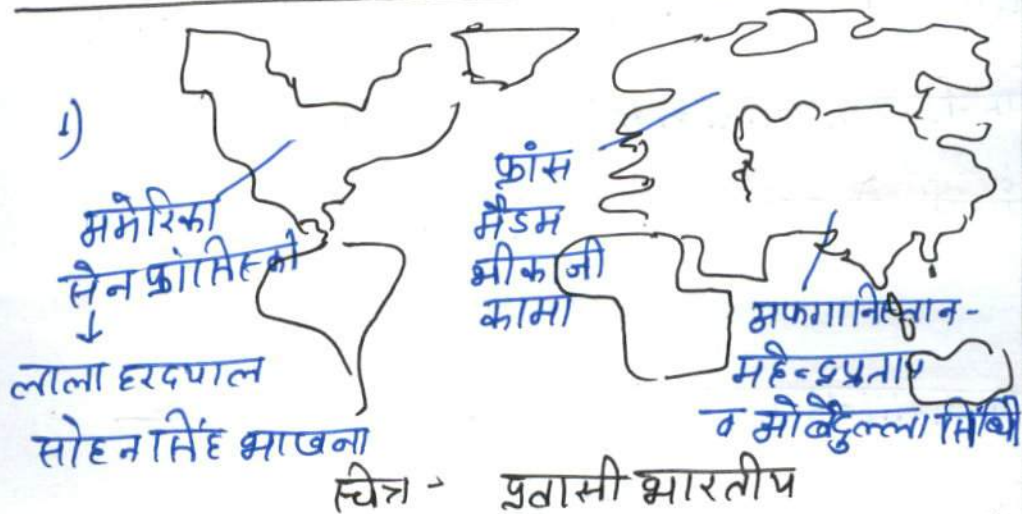 1)
अमेरिका
सेन फ्रांसिस्को
↓
लाला हरदयाल
सोहन सिंह भाखना
फ्रांस
मैडम
भीकाजी
कामा
अफगानिस्तान -
महेन्द्रप्रताप
व ओबैदुल्ला सिंधी
चित्र - प्रवासी भारतीय